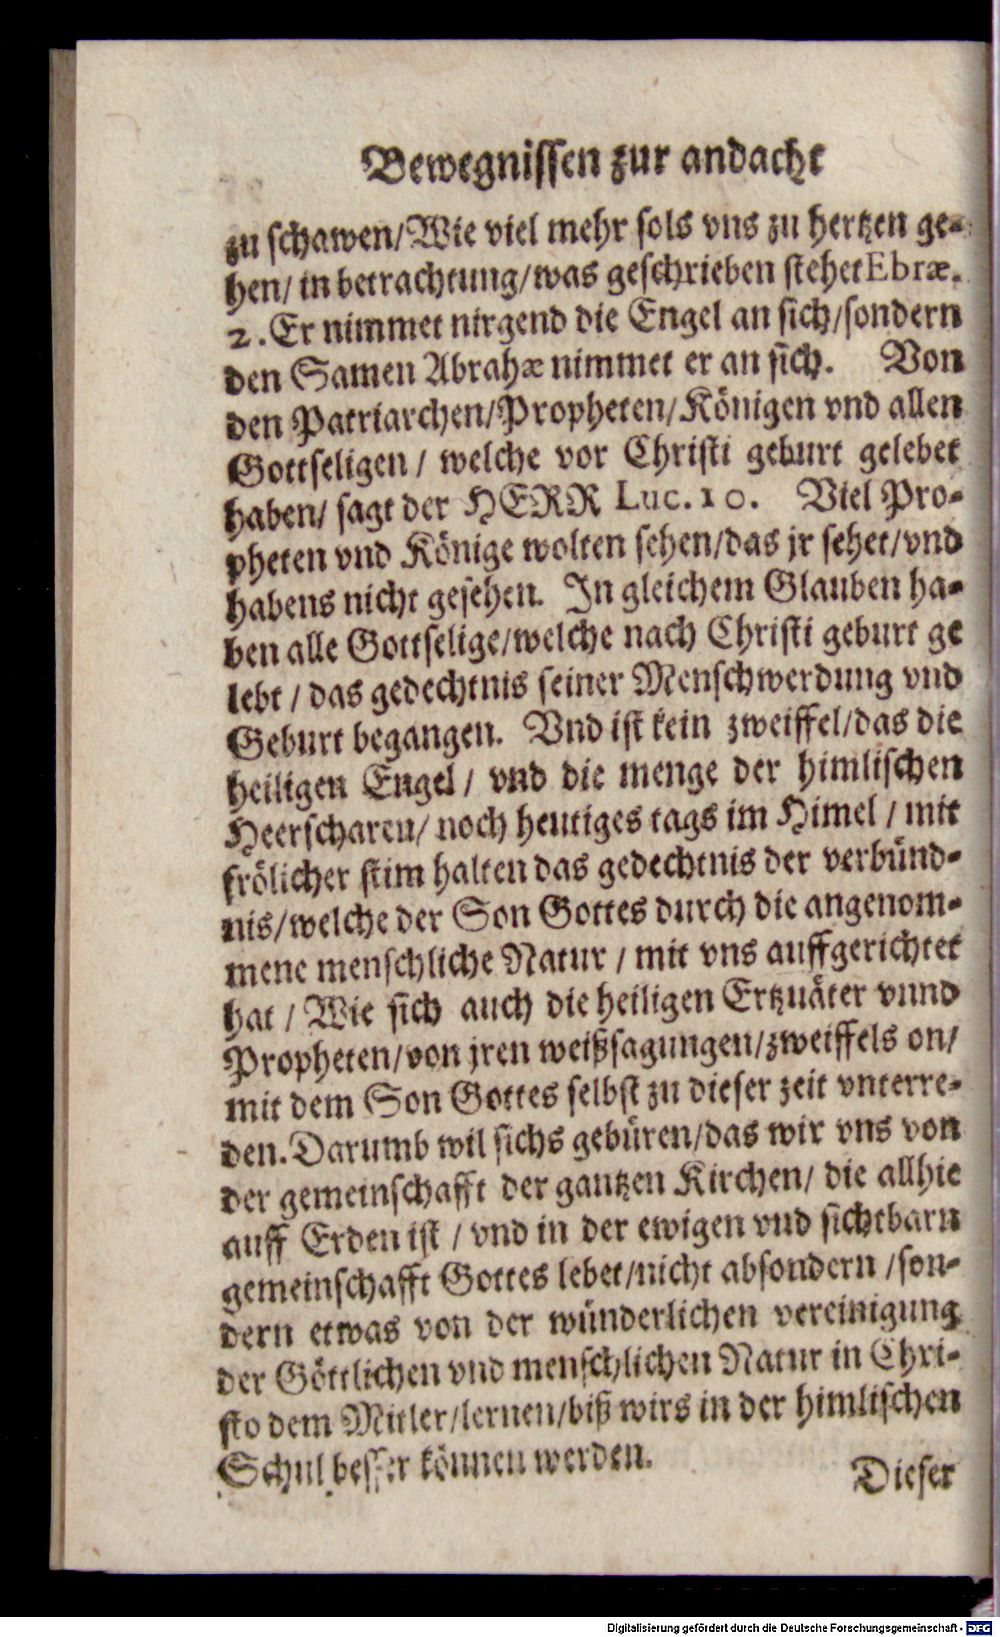 Bewegnissen zur andacht
zu schawen/Wie viel mehr sols vns zu hertzen ge-
hen/ in betrachtung/was geschrieben stehet Ebræ.
2. Er nimmet nirgend die Engel an sich/sondern
den Samen Abrahæ nimmet er an sich. Von
den Patriarchen/Propheten/Königen vnd allen
Gottseligen/ welche vor Christi geburt gelebet
haben/ sagt der HERR Luc. 10. Viel Pro-
pheten vnd Könige wolten sehen/das jr sehet/vnd
habens nicht gesehen. In gleichem Glauben ha-
ben alle Gottselige/welche nach Christi geburt ge
lebt / das gedechtnis seiner Menschwerdung vnd
Geburt begangen. Vnd ist kein zweiffel/das die
heiligen Engel / vnd die menge der himlischen
Heerscharen/ noch heutiges tags im Himel / mit
frölicher stim halten das gedechtnis der verbünd-
nis/welche der Son Gottes durch die angenom-
mene menschliche Natur / mit vns auffgerichtet
hat / Wie sich auch die heiligen Ertzuäter vnnd
Propheten/von jren weißsagungen/zweiffels on/
mit dem Son Gottes selbst zu dieser zeit vnterre-
den. Darumb wil sichs gebüren/das wir vns von
der gemeinschafft der gantzen Kirchen/ die allhie
auff Erden ist / vnd in der ewigen vnd sichtbarn
gemeinschafft Gottes lebet/nicht absondern /son-
dern etwas von der wünderlichen vereinigung
der Göttlichen vnd menschlichen Natur in Chri-
sto dem Mitler/lernen/biß wirs in der himlischen
Schul besser können werden.
Dieser
Digitalisierung gefördert durch die Deutsche Forschungsgemeinschaft - DFG